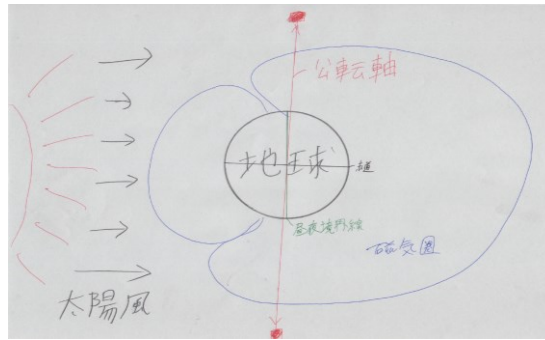 公転軸
地球
昼夜境界線
磁気圏
太陽風